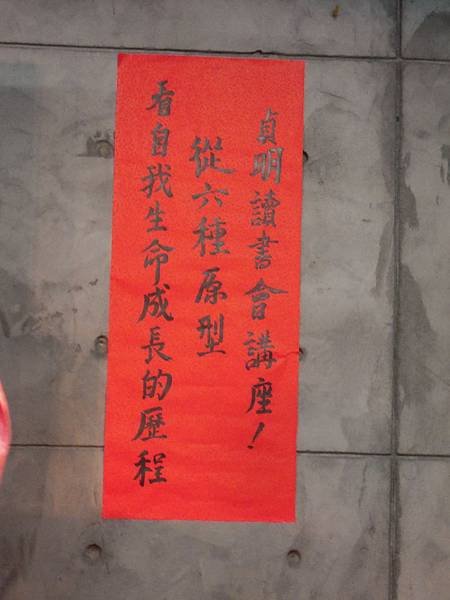 貞明讀書會講座!
從六種原型
看自我生命成長的歷程